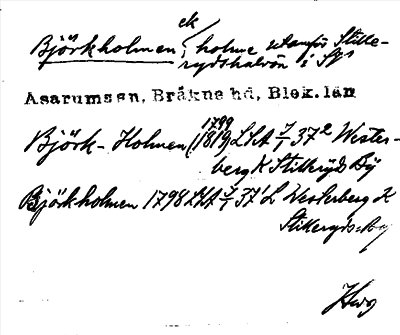 ek
Björkholmen, holme utanför Stille-
rydshalvön i SV
Asarumssn, Bräkne hd, Blek. län
1799
Björk-Holmen (1819) LHA 7/1 37² Wester-
berg K Stilleryds By
Björkholmen 1798 LHA 7/1 37¹ L Westerberg K
Stilleryds By